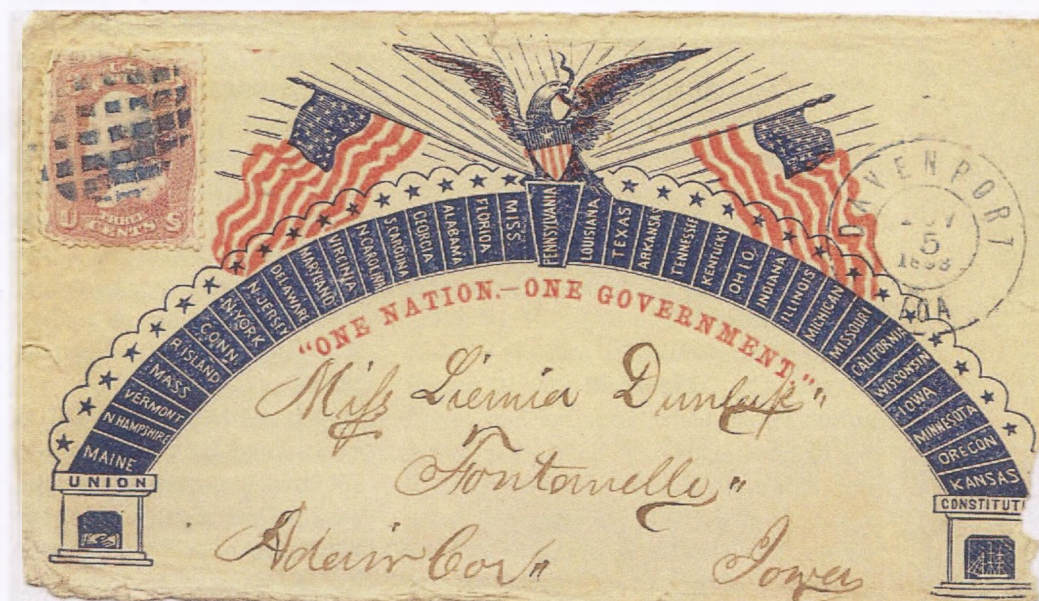 U S
THREE
CENTS
DAVENPORT
5
IOA
MAINE
N HAMPSHIRE
VERMONT
MASS
R ISLAND
CONN
N.YORK
N.JERSEY
DELAWARE
MARYLAND
VIRGINIA
N CAROLINA
S.CAROLINA
GEORGIA
ALABAMA
FLORIDA
MISS
PENNSYLVANIA
LOUISIANA
TEXAS
ARKANSAS
TENNESSEE
KENTUCKY
OHIO
INDIANA
ILLINOIS
MICHIGAN
MISSOURI
CALIFORNIA
WISCONSIN
IOWA
MINNESOTA
OREGON
KANSAS
"ONE NATION.—ONE GOVERNMENT"
UNION
CONSTITUTI
Miss Dunlap"
Fontanelle"
Adair Co"
Iowa